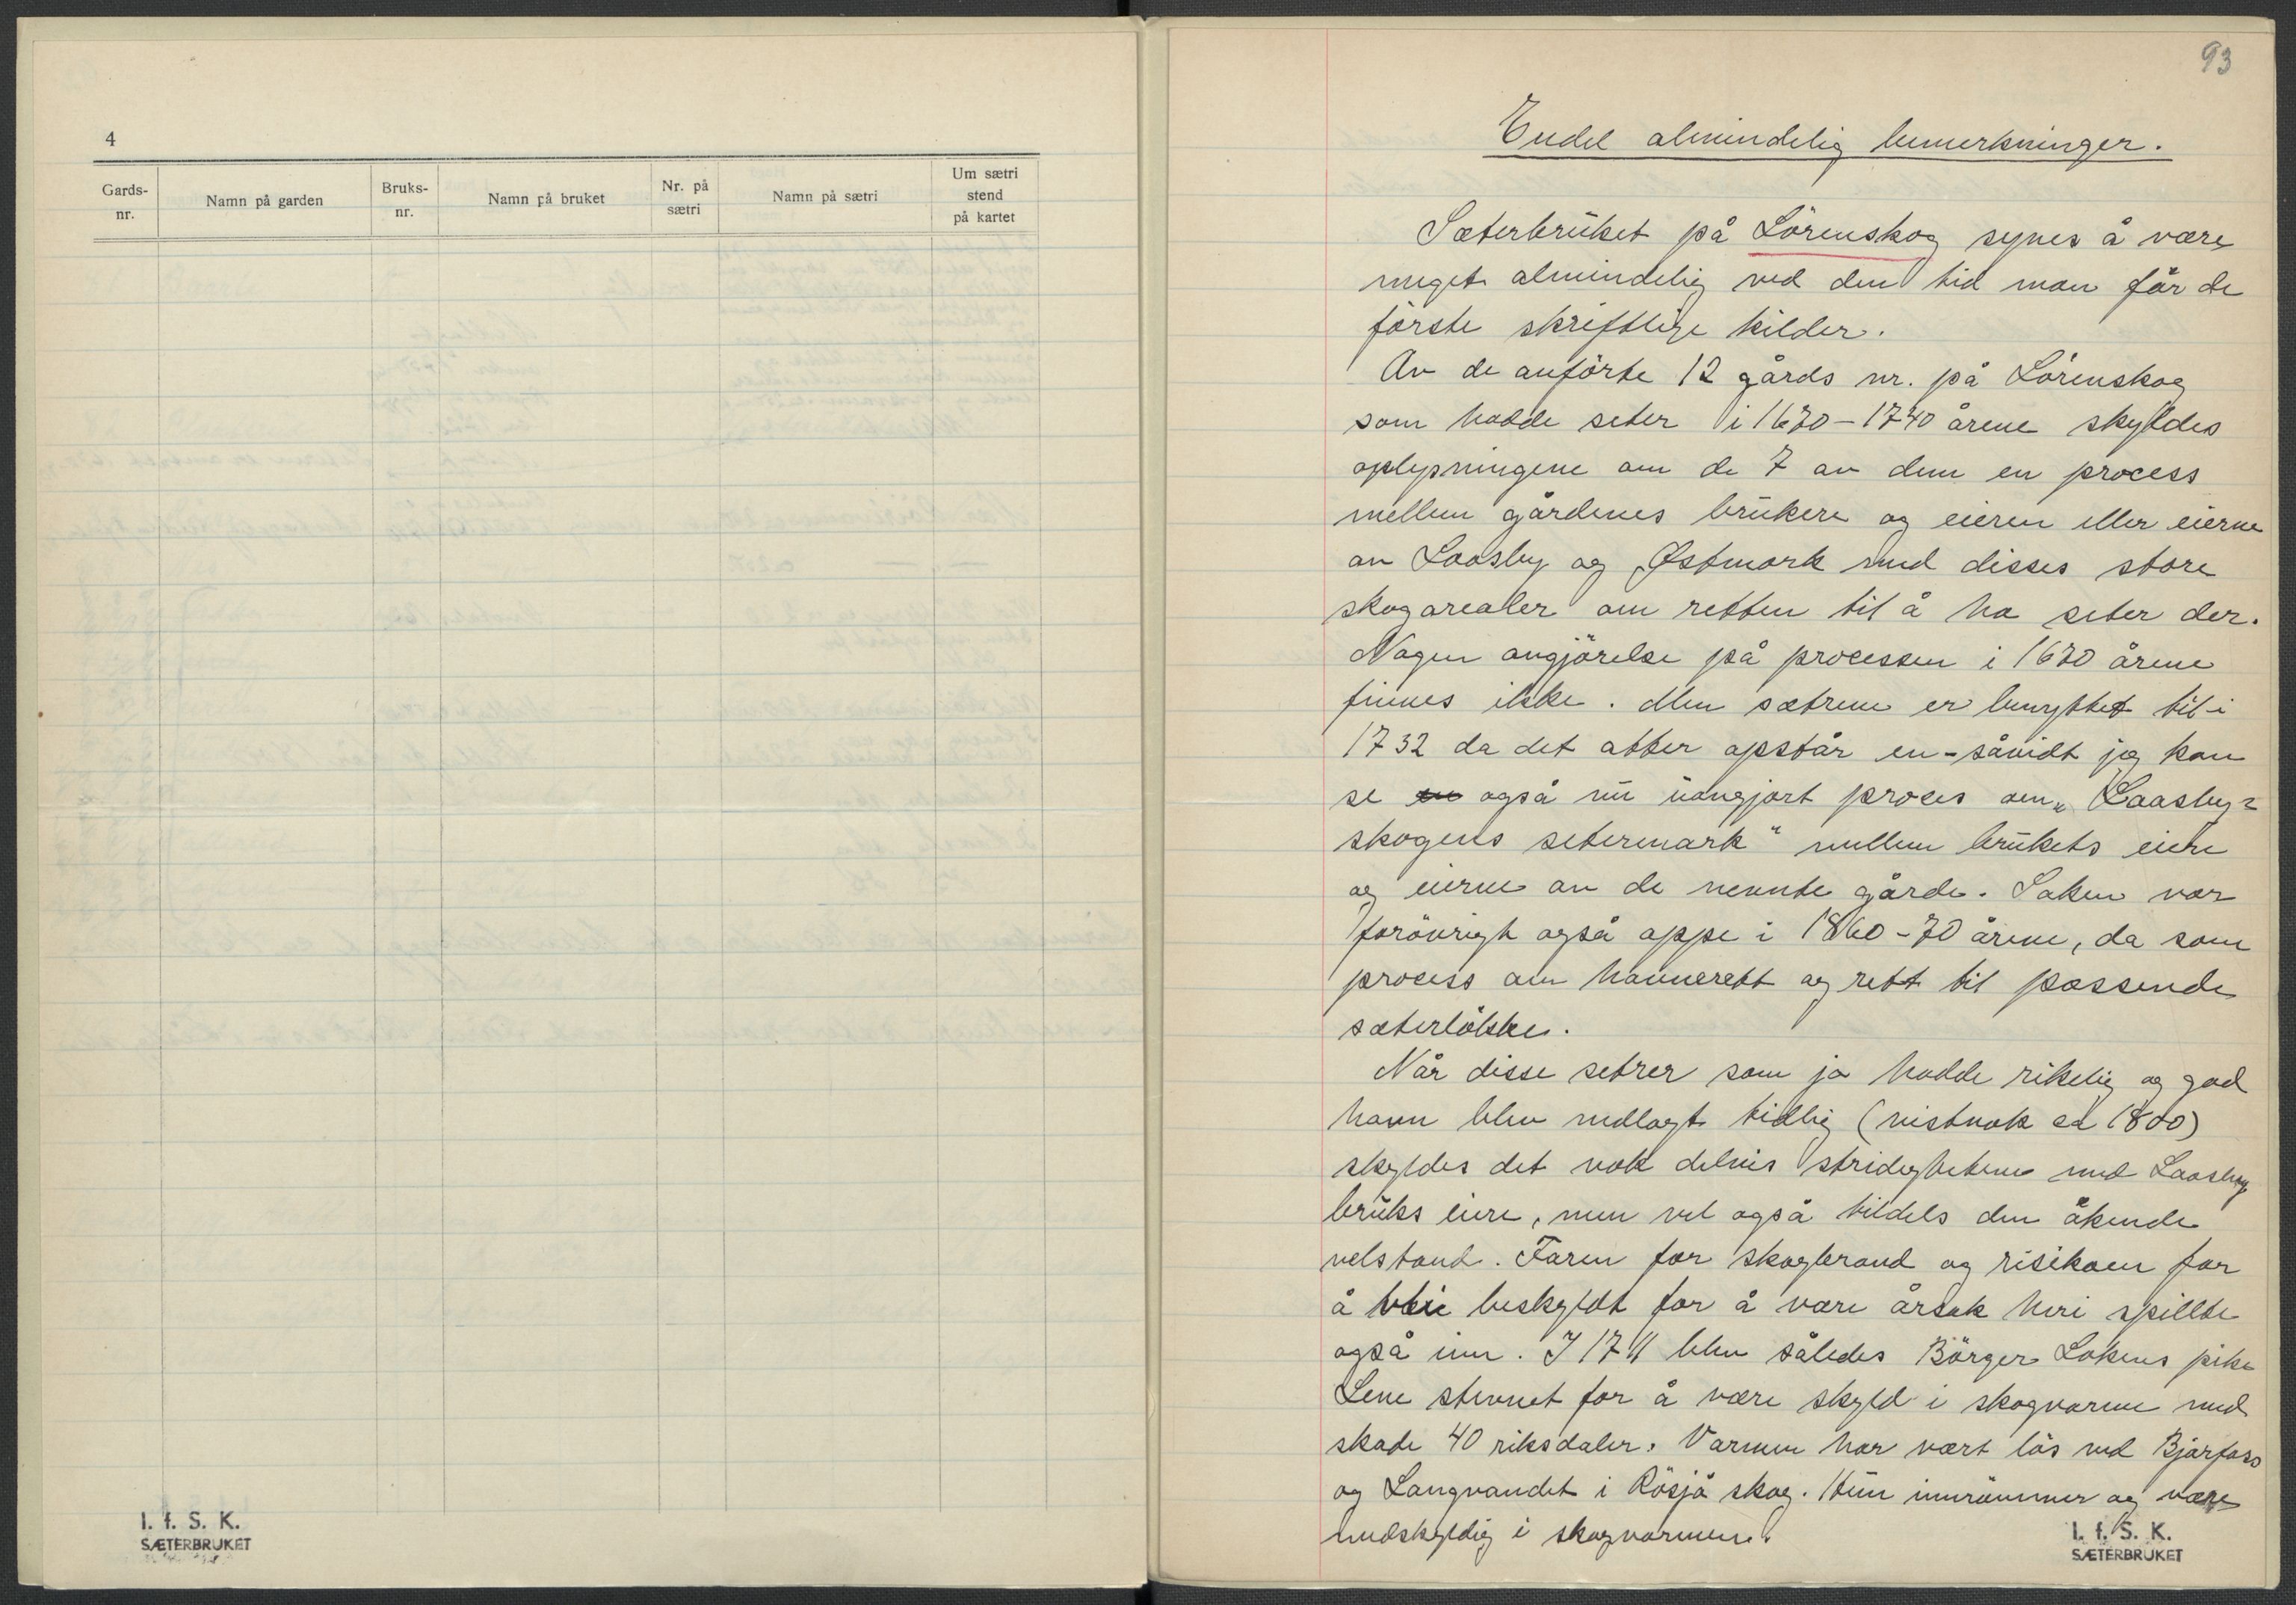 4
Gards-
nr.
Namn på garden
Bruks-
nr.
Namn på bruket
Nr. på
sætri
Namn på sætri
Um sætri
stend
på kartet
I. f. S. K.
SÆTERBRUKET
93
Endel almindelig bemerkninger.
Sæterbruket på Lörenskog synes å være
meget almindelig ved den tid man får de
förste skriftlige kilder.
Av de anförte 12 gårds nr. på Lörenskog
som hadde seter i 1670-1740 årene skyldes
oplysningene om de 7 av dem en process
mellem gårdenes brukere og eieren eller eierne
av Loosby og Østmork med disses store
skogarealer om retten til å ha seter der.
Nogen avgjörelse på processen i 1670 årene
finnes ikke. Men sætrene er benyttet til i
1732 da det atter opstår en - såvidt jeg kan
se en også nu uavgjort proces om „Laasby=
skogens setermark" mellem brukets eiere
og eierne av de nevnte gårde. Saken var
forövrigt også oppe i 1860-70 årene, da som
process om havnerett og rett til passende
sæterlökke.
Når disse setrer som jo hadde rikelig og god
havn blev nedlagt tidlig (vistnok ca 1800)
skyldes det nok delvis stridighetene med Laasby
bruks eiere, men vel også tildels den ökende
velstand. Faren for skogbrand og risikoen for
å bli beskyldt for å være årsak heri spillte
også inn. I 1711 blev således Börger Lokens pike
Lene stevnet for å være skyld i skogvarme med
skade 40 riksdaler. Varmen har vært lös ved Bjørfoss
og Langvandet i Rösjö skog. Hun innrömmer og være
medskyldig i skogvarmen.
I. f. S. K.
SÆTERBRUKET